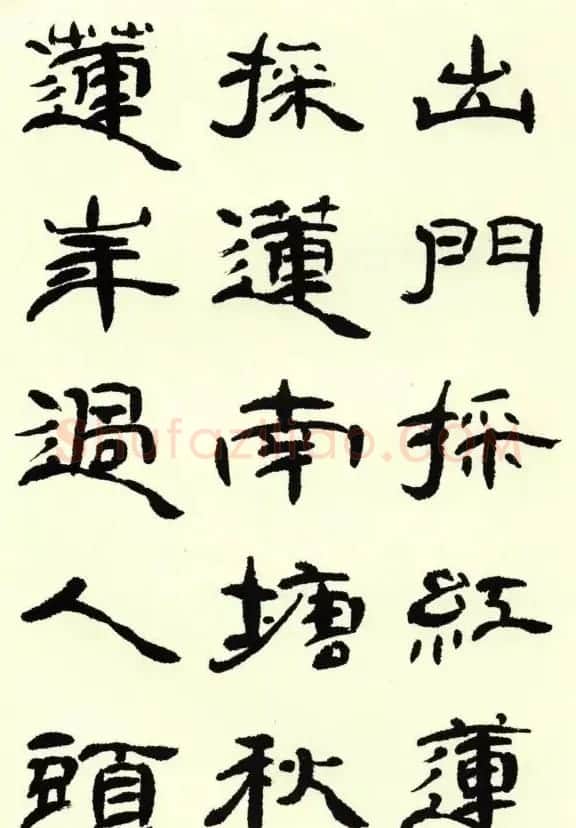 出門採紅蓮
採蓮南塘秋
蓮過人頭
Shufaziliao.COM